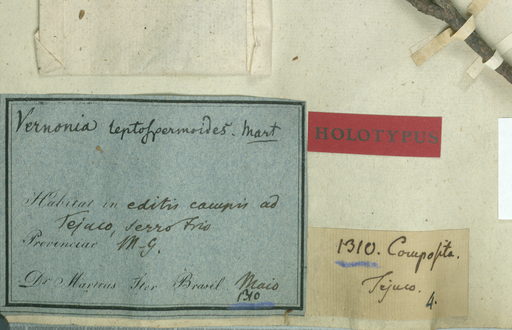 Vernonia leptospermoides. Mart
HOLOTYPUS
Habitat in editis campis ad
Tejuco, Serro Frio
Provinciae M-G.
Dr. Martius Iter Brasil. Maio
1310
1310. Composita.
Tejuco.
4.